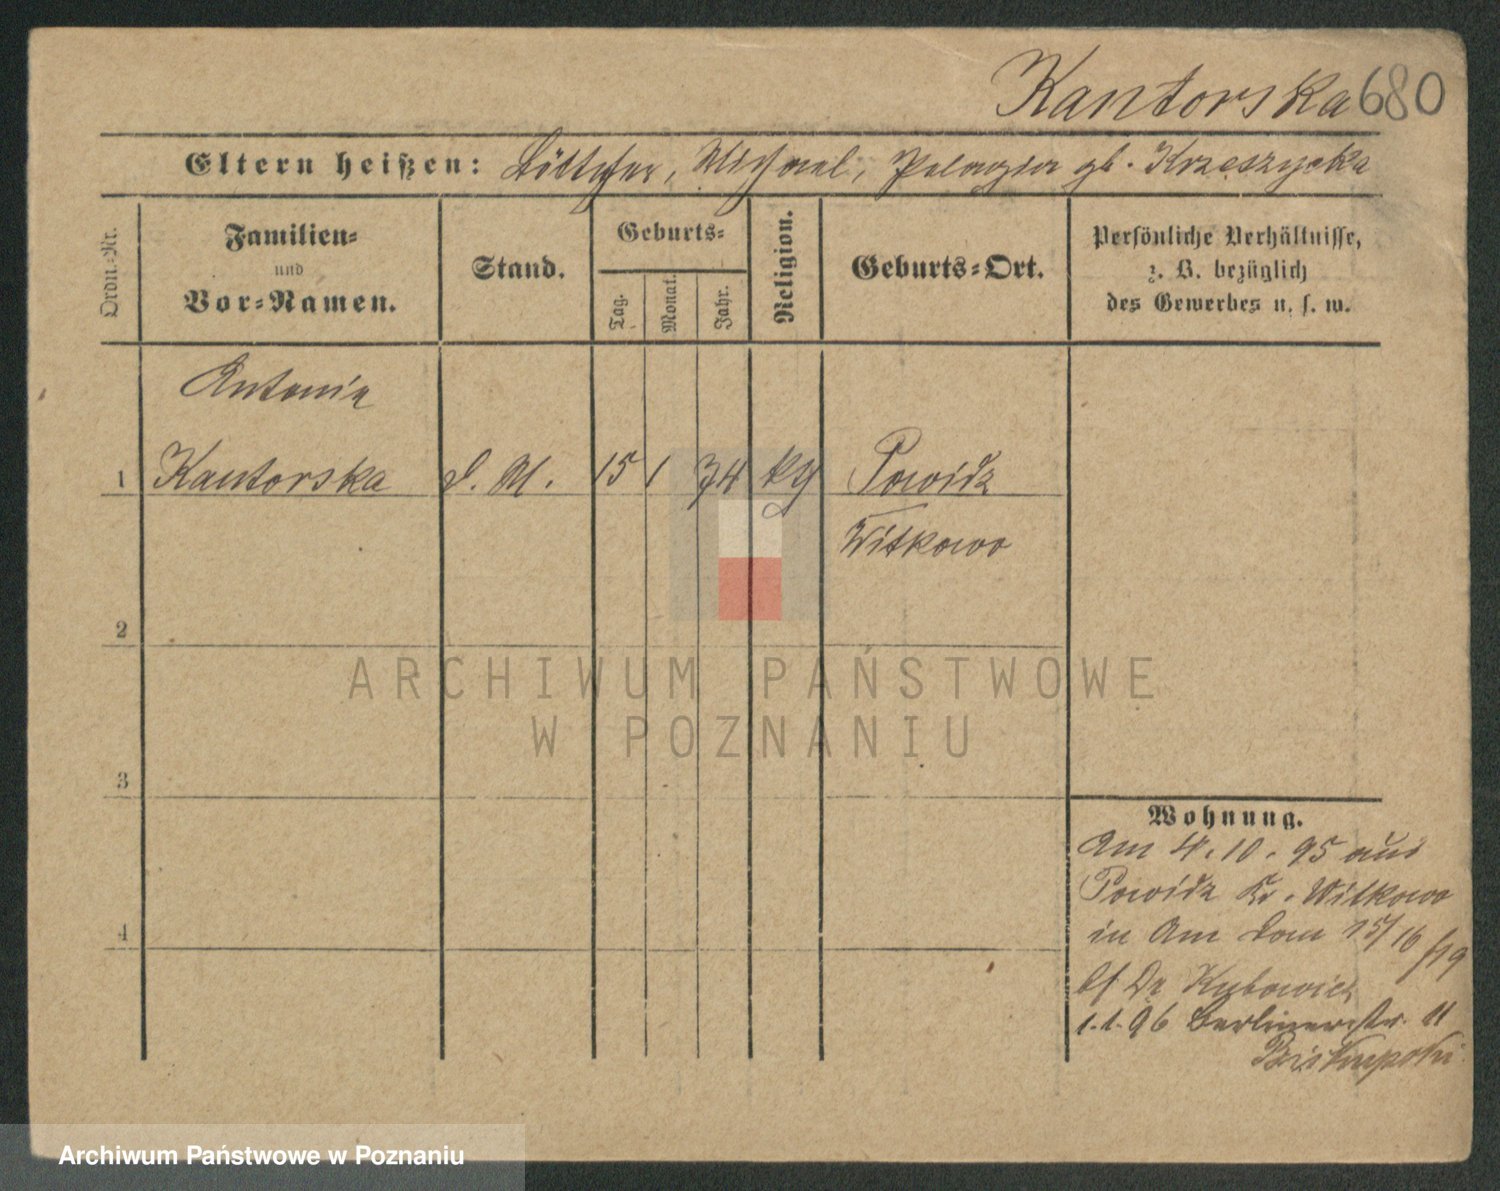 Kantorska 680
Eltern heißen: Böttcher, Michael, Pelagia gb. Krzeszycka
Ordn.-Nr.
Familien-
und
Vor-Namen.
Stand.
Geburts-
Tag.
Monat.
Jahr.
Religion.
Geburts-Ort.
Persönliche Verhältnisse,
z. B. bezüglich
des Gewerbes u. s. w.
Antonie
1 Kantorska d. M. 15 1 74 Powidz
Witkowo
2
3
4
Wohnung.
Am 4.10.95 aus
Powidz Kr. Witkowo
in Am Dom 15/16
bf Dr
1.1.96 Berlinerstr. 11
Biskupski
ARCHIWUM PAŃSTWOWE
W POZNANIU
Archiwum Państwowe w Poznaniu